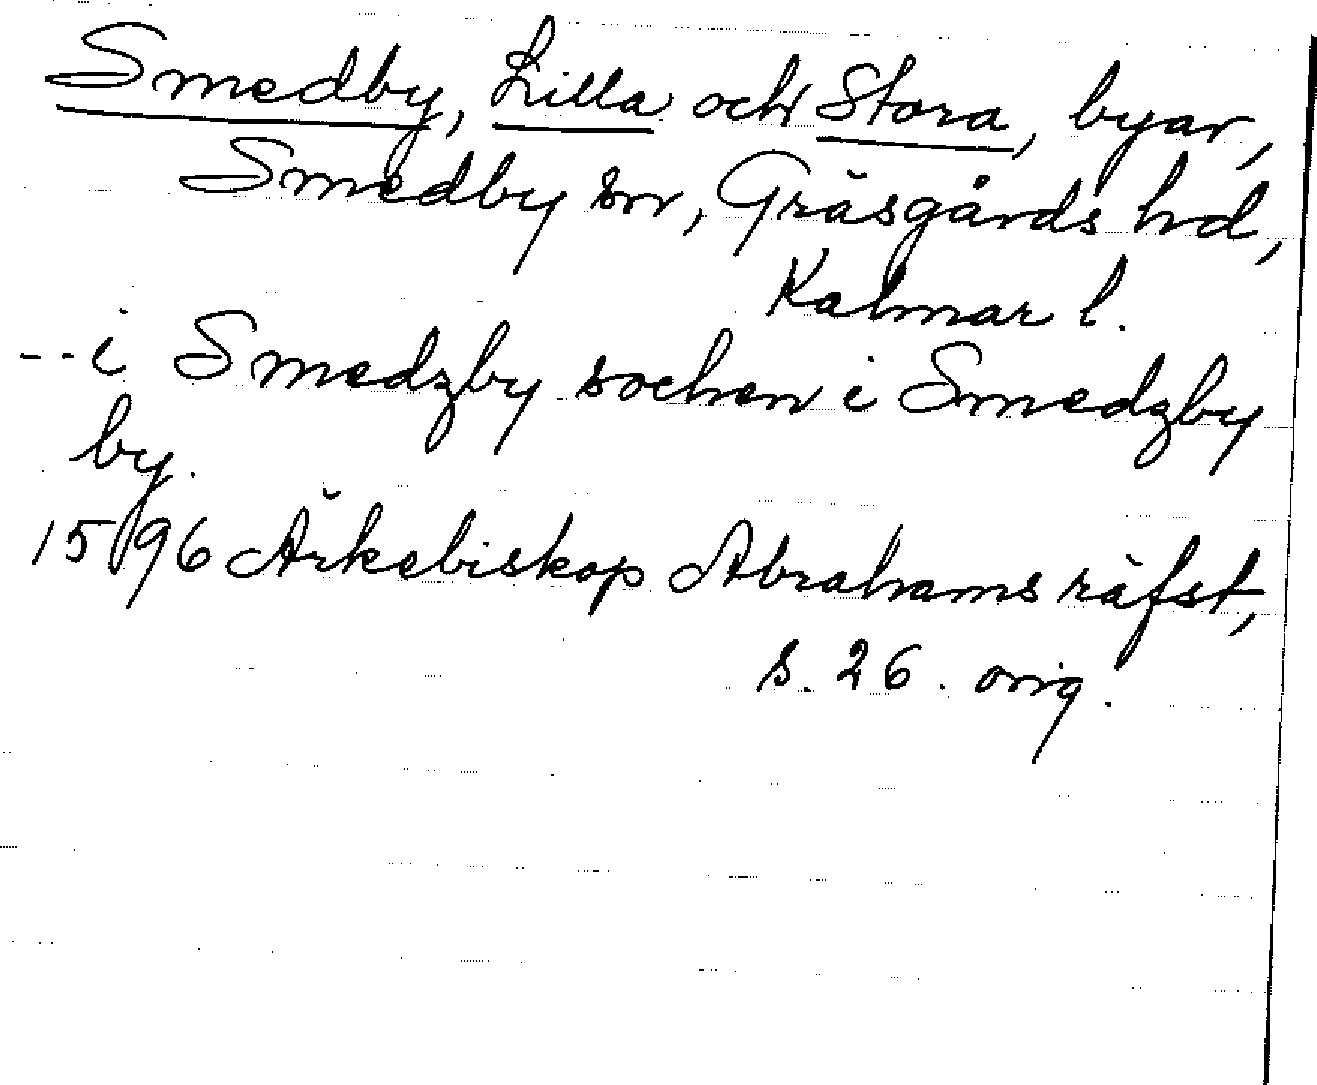 Smedby, Lilla och Stora, byar,
Smedby sn, Gräsgårds hd,
Kalmar l.
--i Smedzby sochen i Smedzby
by.
1596 Ärkebiskop Abrahams räfst,
s. 26. orig.